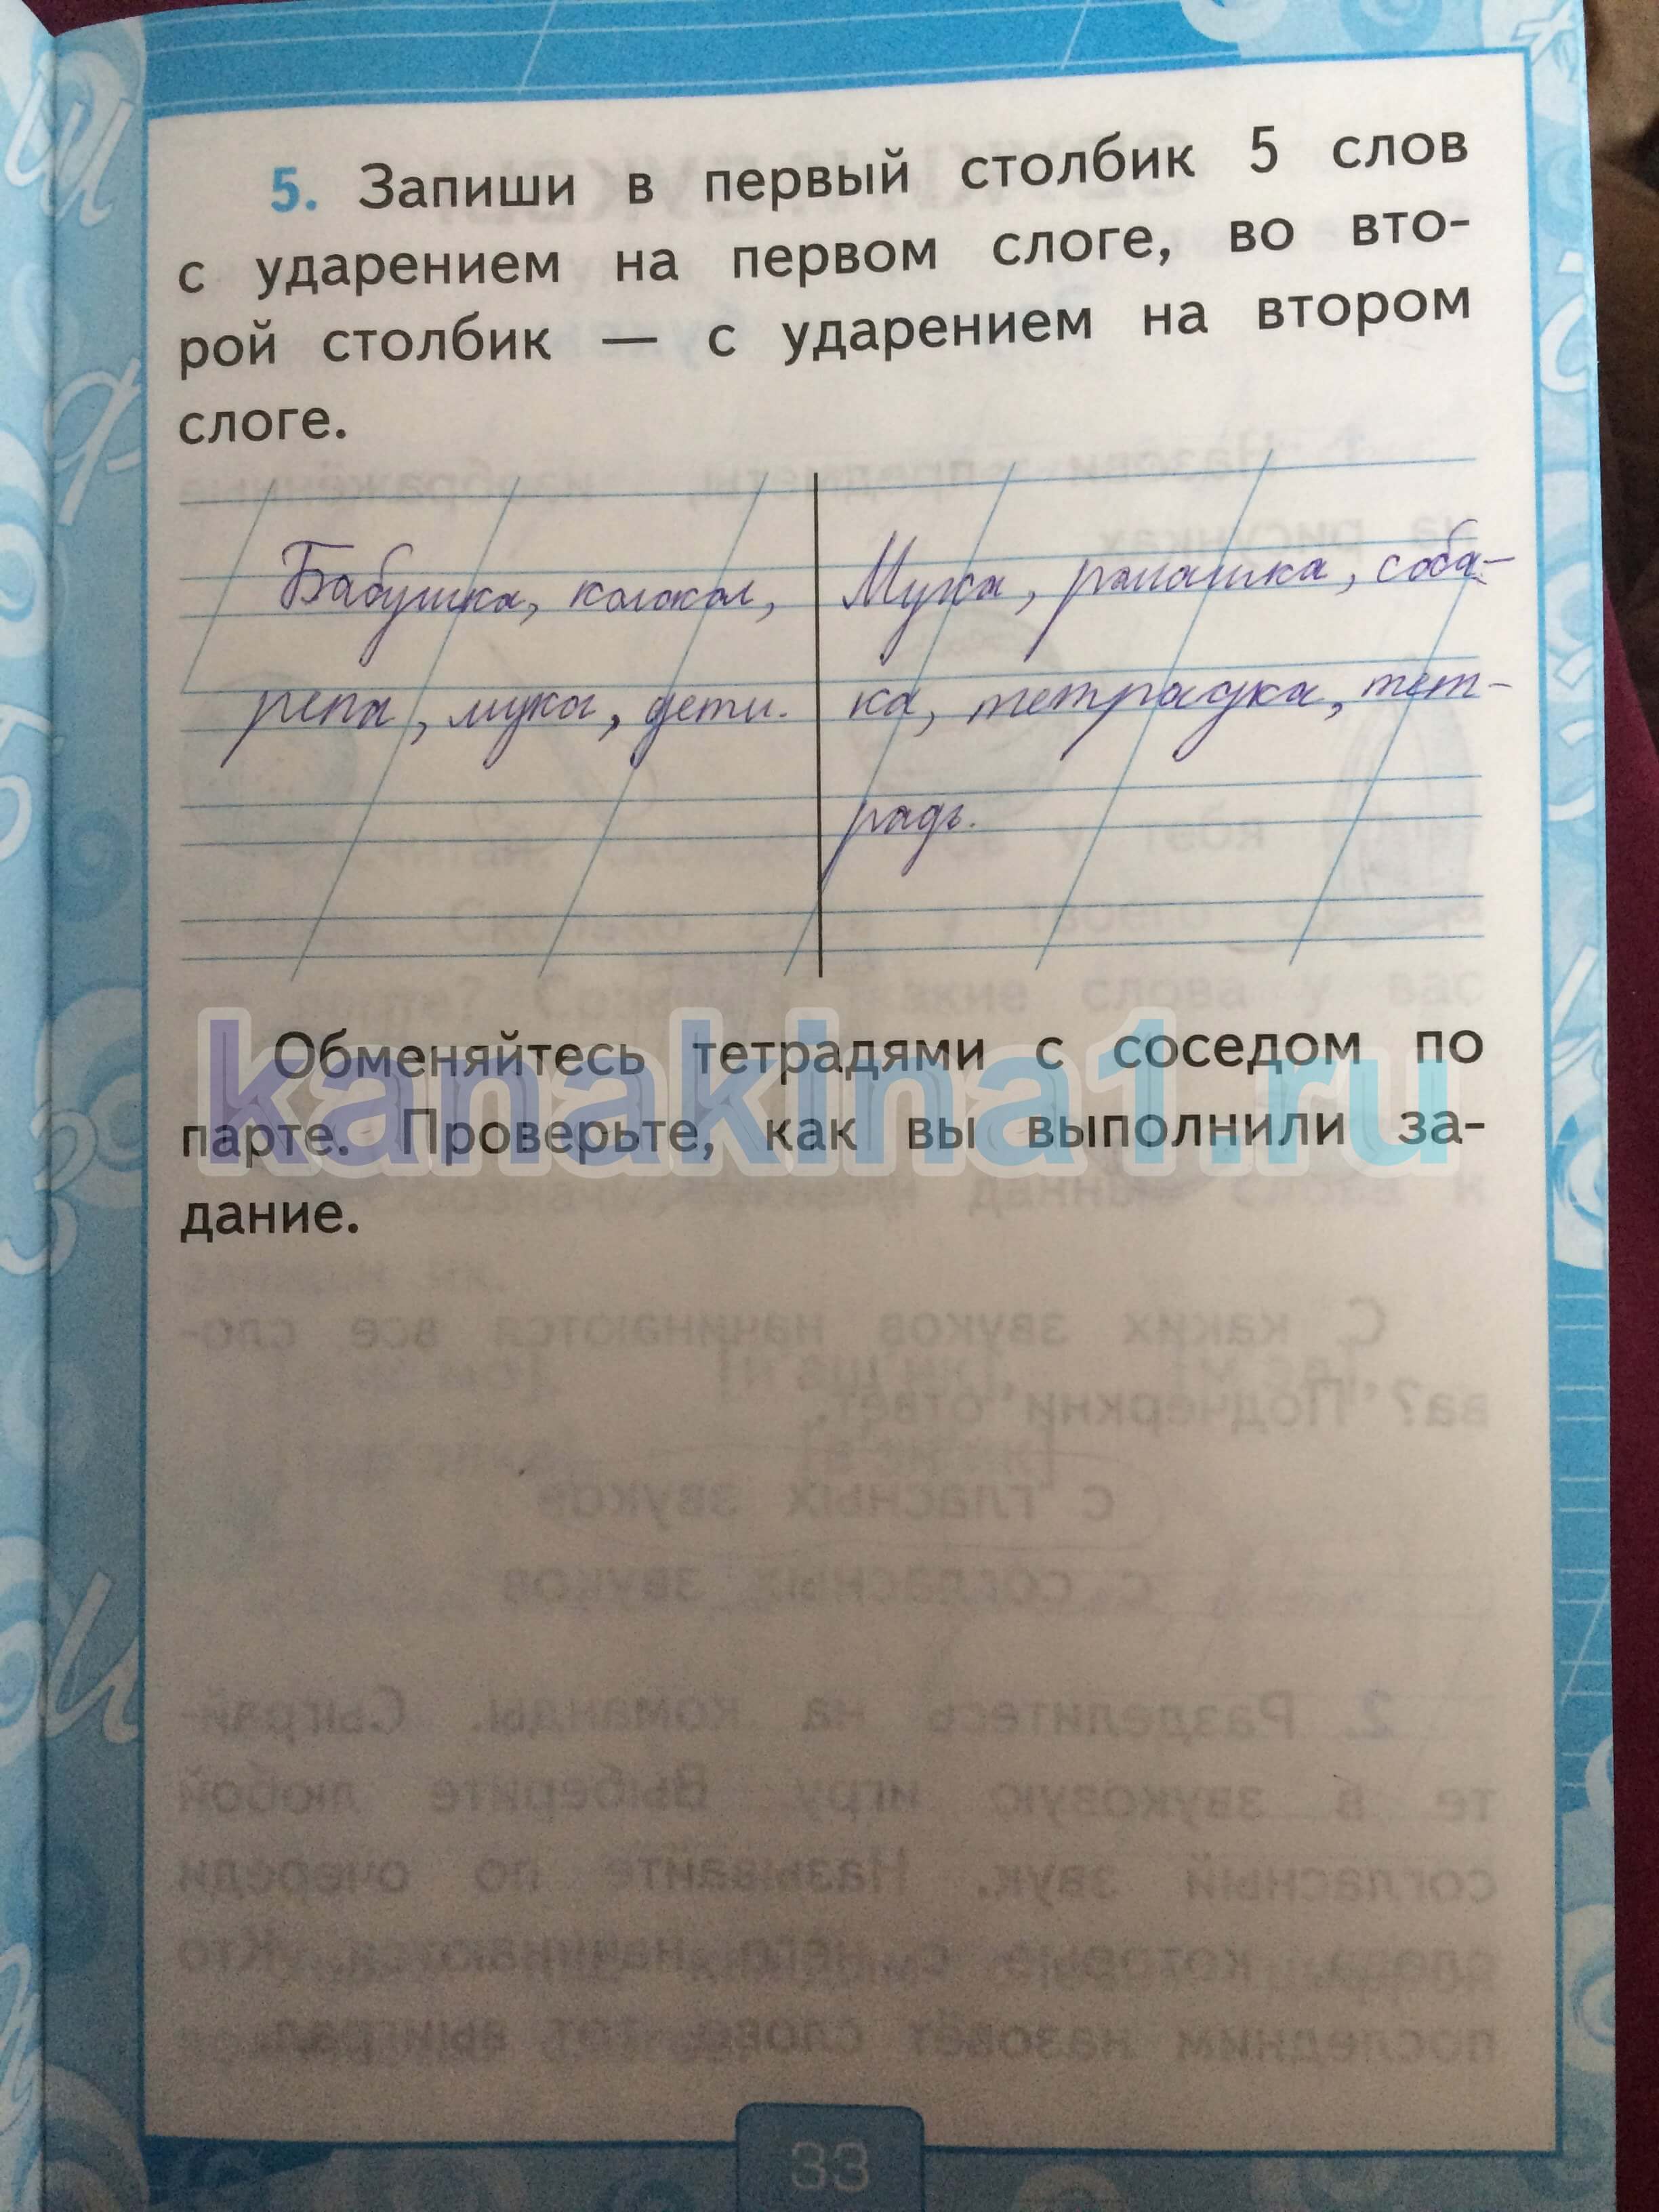 5. Запиши в первый столбик 5 слов
с ударением на первом слоге, во вто-
рой столбик — с ударением на втором
слоге.
Бабушка, колокол,
репа, мука, дети.
Мука, ромашка, соба-
ка, тетрадка, тет-
радь.
kanakina1.ru
Обменяйтесь тетрадями с соседом по
парте. Проверьте, как вы выполнили за-
дание.
33